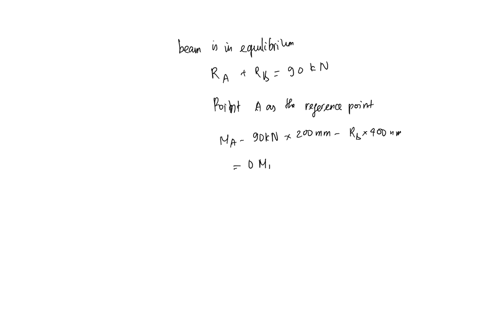 beam is in equlibrium
R_A + R_B = 90 kN
Point A as the reference point
M_A - 90kN × 200mm - R_b × 400mm
= 0 M,